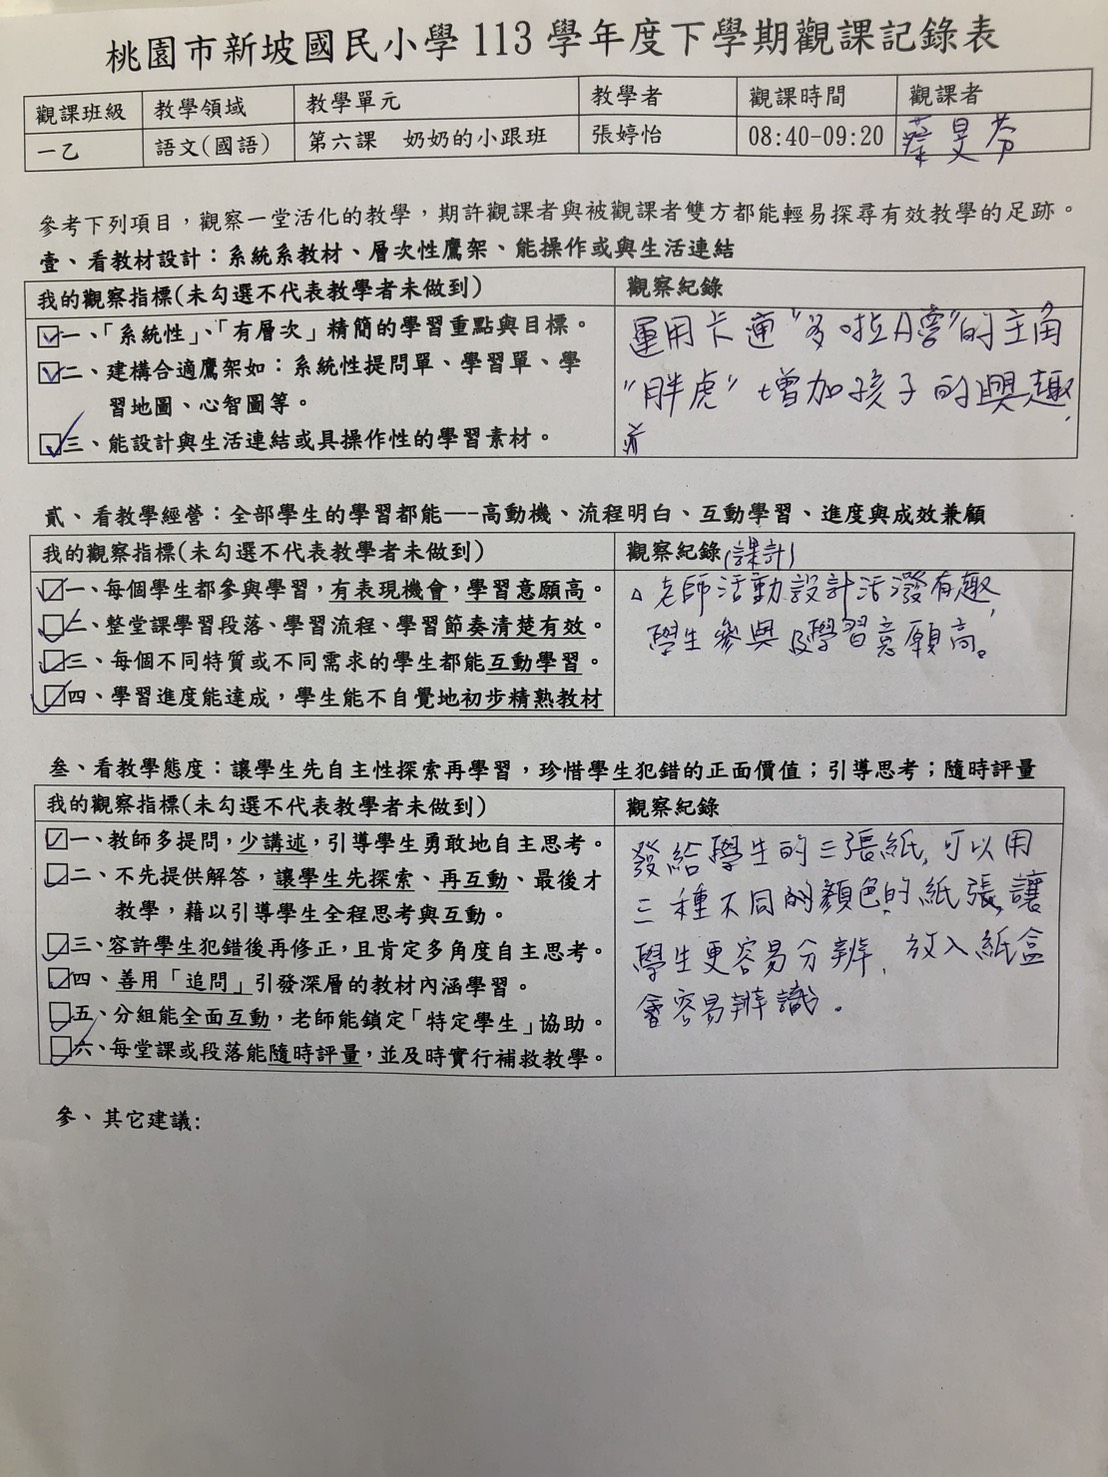 桃園市新坡國民小學 113 學年度下學期觀課記錄表
觀課班級 教學領域 教學單元 教學者 觀課時間 觀課者
一乙 語文(國語) 第六課 奶奶的小跟班 張婷怡 08:40-09:20 蔡旻芬
參考下列項目，觀察一堂活化的教學，期許觀課者與被觀課者雙方都能輕易探尋有效教學的足跡。
壹、看教材設計：系統系教材、層次性鷹架、能操作或與生活連結
我的觀察指標(未勾選不代表教學者未做到) 觀察紀錄
☑一、「系統性」、「有層次」精簡的學習重點與目標。
☑二、建構合適鷹架如：系統性提問單、學習單、學
習地圖、心智圖等。
☑三、能設計與生活連結或具操作性的學習素材。
運用卡通"多啦A夢"的主角
"胖虎"增加孩子的興趣,
貳、看教學經營：全部學生的學習都能——高動機、流程明白、互動學習、進度與成效兼顧
我的觀察指標(未勾選不代表教學者未做到) 觀察紀錄(課計)
☑一、每個學生都參與學習，有表現機會，學習意願高。
☑二、整堂課學習段落、學習流程、學習節奏清楚有效。
☑三、每個不同特質或不同需求的學生都能互動學習。
☑四、學習進度能達成，學生能不自覺地初步精熟教材
△ 老師活動設計活潑有趣,
學生參與及學習意願高。
叁、看教學態度：讓學生先自主性探索再學習，珍惜學生犯錯的正面價值；引導思考；隨時評量
我的觀察指標(未勾選不代表教學者未做到) 觀察紀錄
☑一、教師多提問，少講述，引導學生勇敢地自主思考。
☑二、不先提供解答，讓學生先探索、再互動、最後才
教學，藉以引導學生全程思考與互動。
☑三、容許學生犯錯後再修正，且肯定多角度自主思考。
☑四、善用「追問」引發深層的教材內涵學習。
☑五、分組能全面互動，老師能鎖定「特定學生」協助。
☑六、每堂課或段落能隨時評量，並及時實行補救教學。
發給學生的三張紙,可以用
三種不同的顏色的紙張,讓
學生更容易分辨,放入紙盒
會容易辨識。
參、其它建議: